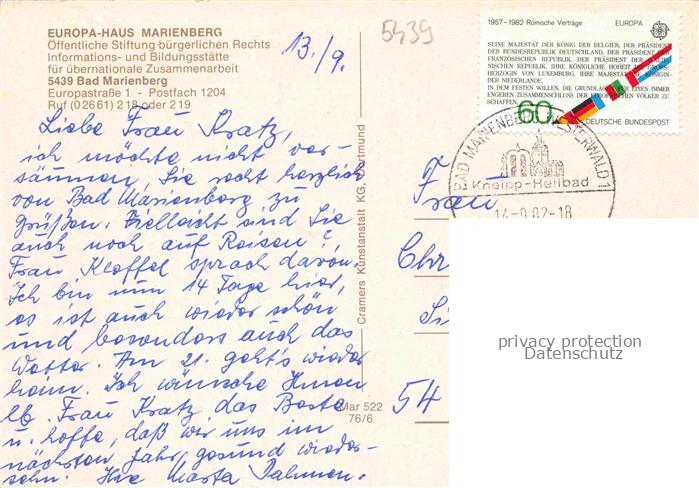 EUROPA-HAUS MARIENBERG
Öffentliche Stiftung bürgerlichen Rechts
Informations- und Bildungsstätte
für übernationale Zusammenarbeit
5439 Bad Marienberg
Europastraße 1 - Postfach 1204
Ruf (02661) 218 oder 219
13./9.
5439
Liebe Frau Kratz,
ich möchte nicht ver-
säumen, Sie recht herzlich
von Bad Marienberg zu
grüßen. Vielleicht sind Sie
auch noch auf Reisen?,
Frau Kloffel sprach davon.
Ich bin nun 14 Tage hier,
es ist auch wieder schön
und besonders auch das
Wetter. Am 21. geht's wieder
heim. Ich wünsche Ihnen
lb. Frau Kratz das Beste
u. hoffe, daß wir uns im
nächsten Jahr gesund wieder-
sehn. Ihre Marta Dahmen.
Cramers Kunstanstalt KG, Dortmund
Mar 522
76/6
1957-1982 Römische Verträge EUROPA
SEINE MAJESTÄT DER KÖNIG DER BELGIER, DER PRÄSIDENT
DER BUNDESREPUBLIK DEUTSCHLAND, DER PRÄSIDENT DER
FRANZÖSISCHEN REPUBLIK, DER PRÄSIDENT DER ITALIE-
NISCHEN REPUBLIK, IHRE KÖNIGLICHE HOHEIT DIE GROSS-
HERZOGIN VON LUXEMBURG, IHRE MAJESTÄT DIE KÖNIGIN
DER NIEDERLANDE,
IN DEM FESTEN WILLEN, DIE GRUNDLAGEN FÜR EINEN IMMER
ENGEREN ZUSAMMENSCHLUSS DER EUROPÄISCHEN VÖLKER ZU
SCHAFFEN
60
DEUTSCHE BUNDESPOST
BAD MARIENBERG WESTERWALD 1
Kneipp-Heilbad
14-9.82-18
Frau
Chr
54
privacy protection
Datenschutz